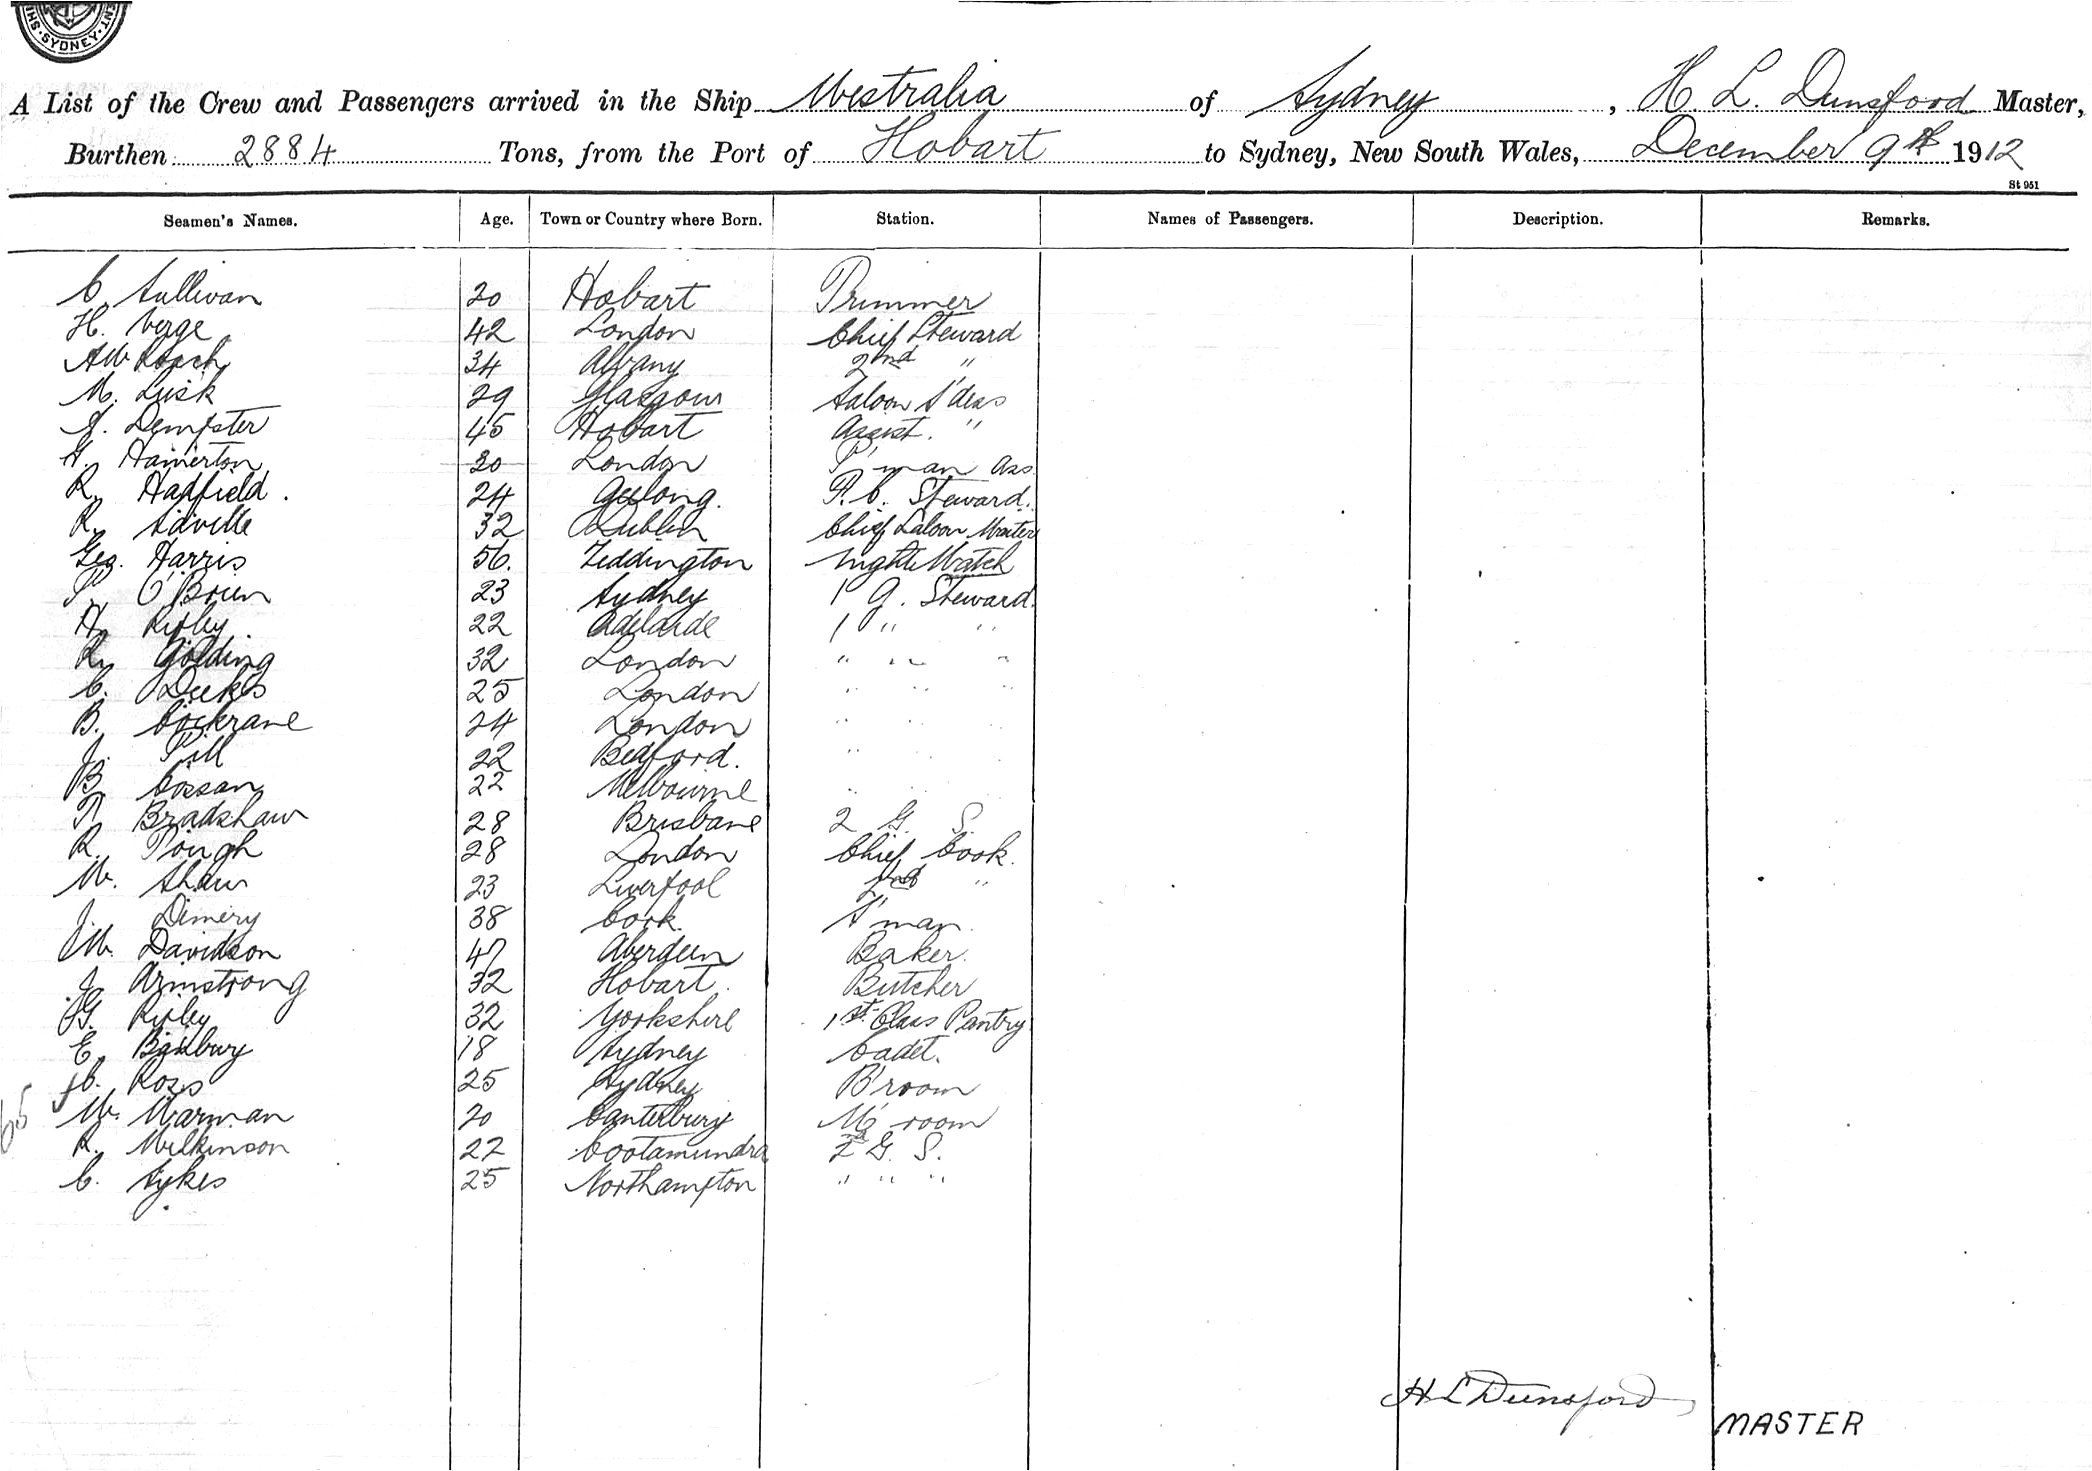 SYDNEY
A List of the Crew and Passengers arrived in the Ship Westralia of Sydney, H. L. Dunsford Master,
Burthen 2884 Tons, from the Port of Hobart to Sydney, New South Wales, December 9th 1912
St 951
Seamen's Names. Age. Town or Country where Born. Station. Names of Passengers. Description. Remarks.
C. Sullivan 20 Hobart Trimmer
H. Verge 42 London Chief Steward
AW 34 Albany 2nd "
M. Lusk 29 Glasgow Saloon S'dess
J. Dempster 45 Hobart Assist. "
H. Hamerton 30 London P'man Ass
R. Hadfield. 24 Geelong. P.C. Steward.
R. Saville 32 Dublin Chief Saloon Waiter
Geo. Harris 56. Teddington Night Watch
P. O'Brien 23 Sydney 1 G. Steward.
A. Ripley 22 Adelaide 1 " "
R. Golding 32 London " " "
C. Deeks 25 London " " "
B. Cockrane 24 London " "
J. Pill 22 Bedford. "
B. Cossan 22 Melbourne "
T. Bradshaw 28 Brisbane 2 G. S.
R. Pough 28 London Chief Cook.
W. Shaw 23 Liverpool 2nd "
J. Dimery 38 Cork. S'man
J.W. Davidson 47 Aberdeen Baker.
J. Armstrong 32 Hobart. Butcher
G. Ripley 32 Yorkshire 1st Class Pantry
E. Banbury 18 Sydney Cadet.
C. Ross 25 Sydney B'room
W. Warman 20 Canterbury M'room
R. Wilkinson 22 Cootamundra 2nd G. S.
C. Sykes 25 Northampton " " "
65
H L Dunsford
MASTER